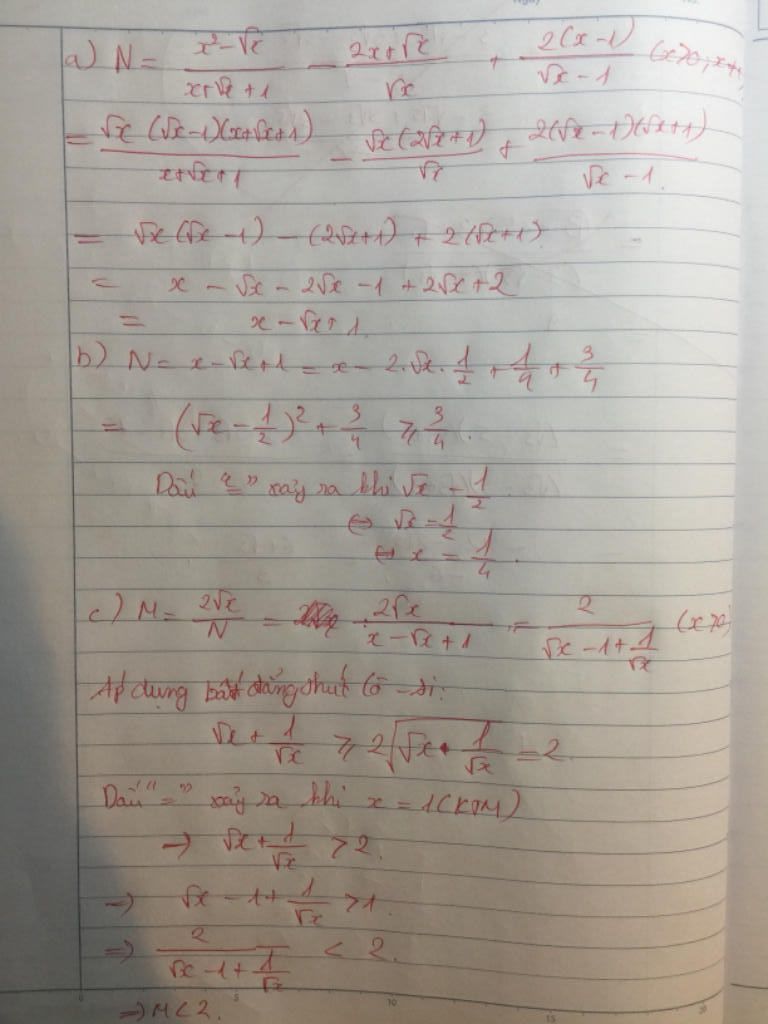 a) N = \frac{x^2-\sqrt{x}}{x+\sqrt{x}+1} - \frac{2x+\sqrt{x}}{\sqrt{x}} + \frac{2(x-1)}{\sqrt{x}-1} (x>0; x≠
= \frac{\sqrt{x}(\sqrt{x}-1)(x+\sqrt{x}+1)}{x+\sqrt{x}+1} - \frac{\sqrt{x}(2\sqrt{x}+1)}{\sqrt{x}} + \frac{2(\sqrt{x}-1)(\sqrt{x}+1)}{\sqrt{x}-1}.
= \sqrt{x}(\sqrt{x}-1) - (2\sqrt{x}+1) + 2(\sqrt{x}+1).
= x - \sqrt{x} - 2\sqrt{x} - 1 + 2\sqrt{x} + 2
= x - \sqrt{x} + 1.
b) N = x - \sqrt{x} + 1 = x - 2.\sqrt{x}.\frac{1}{2} + \frac{1}{4} + \frac{3}{4}
= (\sqrt{x} - \frac{1}{2})^2 + \frac{3}{4} ≥ \frac{3}{4}.
Dấu "=" xảy ra khi \sqrt{x} - \frac{1}{2}
⇔ \sqrt{x} = \frac{1}{2}
⇔ x = \frac{1}{4}.
c) M = \frac{2\sqrt{x}}{N} = \frac{2\sqrt{x}}{x-\sqrt{x}+1} = \frac{2}{\sqrt{x}-1+\frac{1}{\sqrt{x}}} (x>0)
Áp dụng bất đẳng thức Cô-si:
\sqrt{x} + \frac{1}{\sqrt{x}} ≥ 2\sqrt{\sqrt{x}.\frac{1}{\sqrt{x}}} = 2
Dấu "=" xảy ra khi x = 1 (KTM)
→ \sqrt{x} + \frac{1}{\sqrt{x}} > 2.
⇒ \sqrt{x} - 1 + \frac{1}{\sqrt{x}} > 1.
⇒ \frac{2}{\sqrt{x}-1+\frac{1}{\sqrt{x}}} < 2.
⇒ M < 2.
0 5 10 15 20